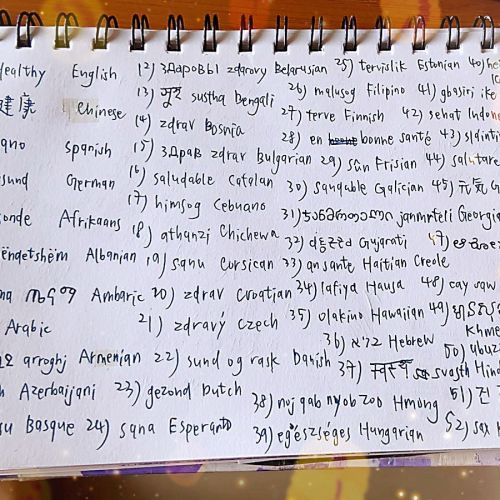 ealthy English
健康 Chinese
ano Spanish
sund German
sonde Afrikaans
ëndetshëm Albanian
Ambaric
Arabic
arroghj Armenian
Azerbaijani
su Basque
12) здаровы zdarovy Belarusian
13) সুস্থ sustha Bengali
14) zdrav Bosnia
15) здрав zdrav Bulgarian
16) saludable Catalan
17) himsog Cebuano
18) athanzi Chichewa
19) sanu Corsican
20) zdrav Croatian
21) zdravý Czech
22) sund og rask Danish
23) gezond Dutch
24) sana Esperanto
35) tervislik Estonian
26) malusog Filipino
27) terve Finnish
28) en bonne santé
29) sûn Frisian
30) saudable Galician
31) ჯანმრთელი janmrteli Georgia
32) Gujarati
33) an sante Haitian Creole
34) lafiya Hausa
35) olakino Hawaiian
36) בריא Hebrew
37) स्वस्थ svasth Hind
38) noj qab nyob zoo Hmong
39) egészséges Hungarian
40) hei
41) gbasiri ike
42) sehat Indone
43) sláinti
44) salutare
45) 元気
47)
48) cay saw
49)
Khme
50) ubuzi
51) 건
52) sax